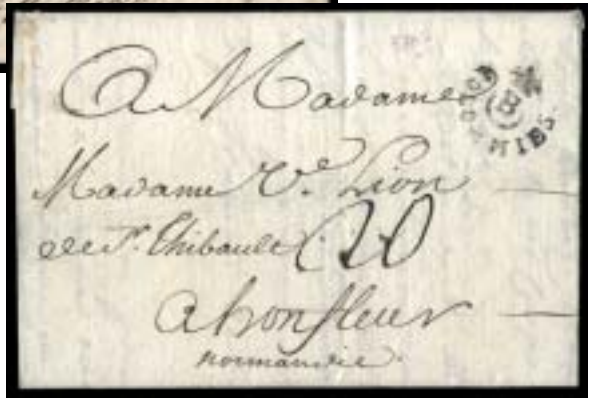 A Madame
Madame Ve. Lion
de St. Thibault 20
a honfleur
normandie.
COLONIES